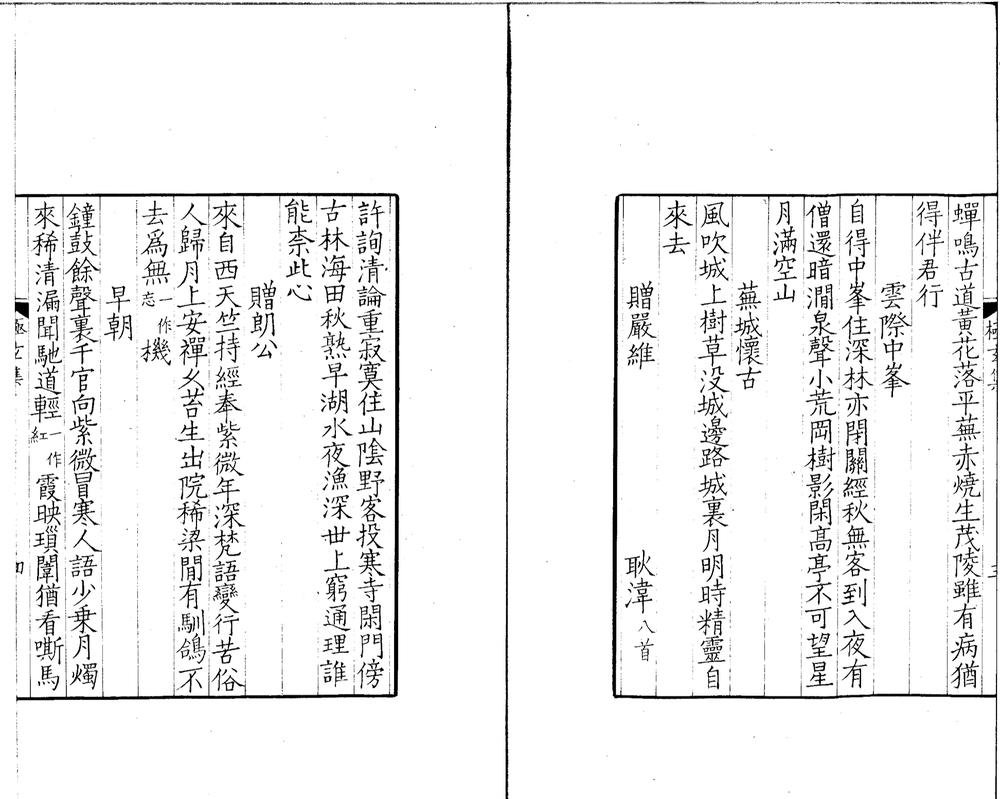 蟬鳴古道黃花落平蕪赤燒生茂陵雖有病猶
得伴君行
雲際中峯
自得中峯住深林亦閉關經秋無客到入夜有
僧還暗澗泉聲小荒岡樹影閑高亭不可望星
月滿空山
蕪城懷古
風吹城上樹草没城邊路城裏月明時精靈自
來去
贈嚴維
耿湋八首
許詢清論重寂寞住山陰野客投寒寺閑門傍
古林海田秋熟早湖水夜漁深世上窮通理誰
能柰此心
贈朗公
來自西天竺持經奉紫微年深梵語變行苦俗
人歸月上安禪久苔生出院稀梁間有馴鴿不
去爲無一作忘機
早朝
鐘鼓餘聲裏千官向紫微冒寒人語少乗月燭
來稀清漏聞馳道輕一作紅霞映瑣闈猶看嘶馬